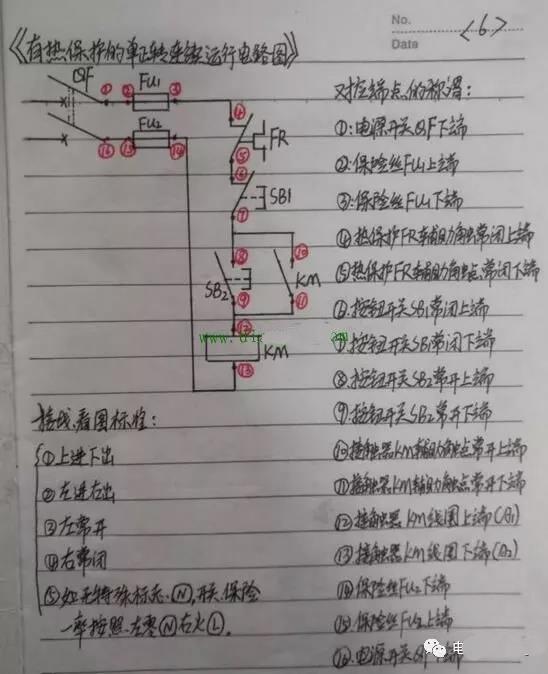 No. <6>
Date
《有热保护的单正转连续运行电路图》
QF
FU1
① ② ③
FU2
⑯ ⑮ ⑭
④
FR
⑤
⑥
SB1
⑦
⑧ ⑩
SB2 KM
⑨ ⑪
⑫
KM
⑬
对应端点的称谓：
①:电源开关QF下端
②:保险丝FU1上端
③:保险丝FU1下端
④热保护FR辅助触点常闭上端
⑤热保护FR辅助触点常闭下端
⑥按钮开关SB1常闭上端
⑦按钮开关SB1常闭下端
⑧按钮开关SB2常开上端
⑨按钮开关SB2常开下端
⑩接触器KM辅助触点常开上端
⑪接触器KM辅助触点常开下端
⑫接触器KM线圈上端(A1)
⑬接触器KM线圈下端(A2)
⑭保险丝FU2下端
⑮保险丝FU2上端
⑯电源开关QF下端
接线看图标准：
①上进下出
②左进右出
③左常开
④右常闭
⑤如无特殊标志Ⓝ,开关.保险
一率按照左零Ⓝ右火Ⓛ.
电